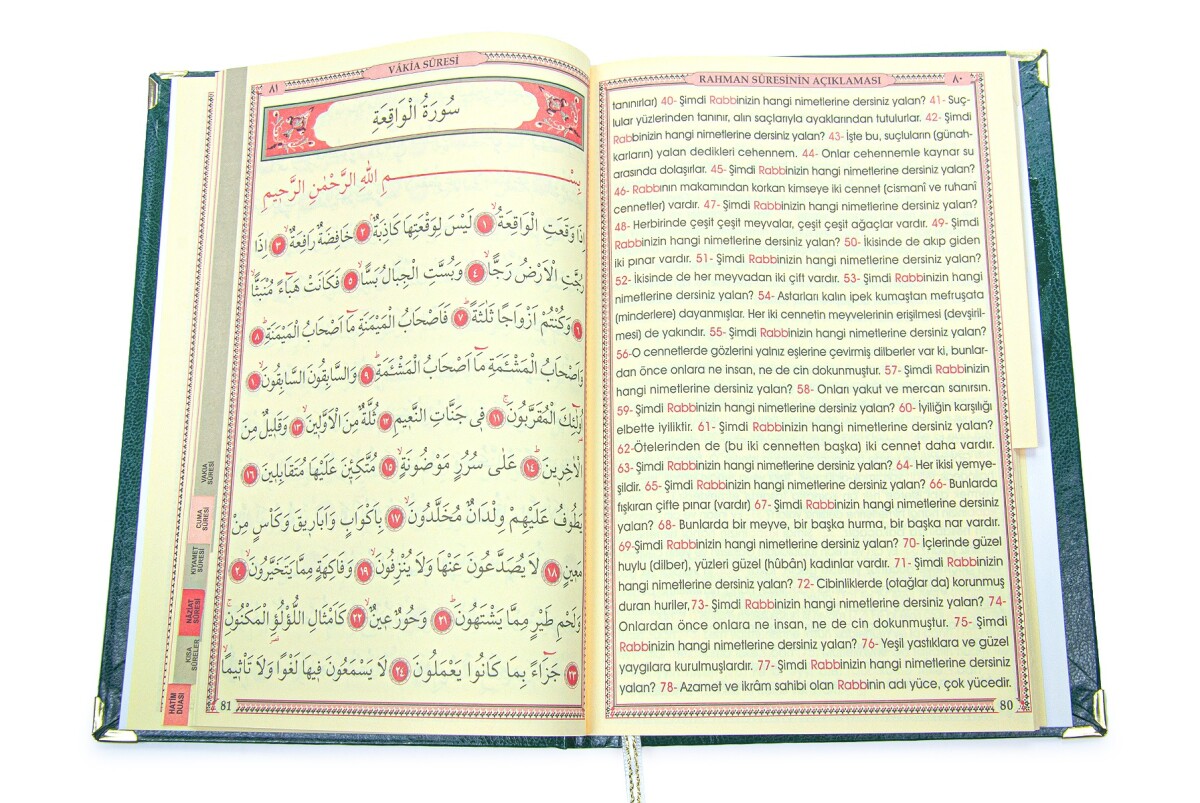 RAHMAN SÛRESİNİN AÇIKLAMASI
٨٠
tanınırlar) 40- Şimdi Rabbinizin hangi nimetlerine dersiniz yalan? 41- Suç-
lular yüzlerinden tanınır, alın saçlarıyla ayaklarından tutulurlar. 42- Şimdi
Rabbinizin hangi nimetlerine dersiniz yalan? 43- İşte bu, suçluların (günah-
karların) yalan dedikleri cehennem. 44- Onlar cehennemle kaynar su
arasında dolaşırlar. 45- Şimdi Rabbinizin hangi nimetlerine dersiniz yalan?
46- Rabbının makamından korkan kimseye iki cennet (cismanî ve ruhanî
cennetler) vardır. 47- Şimdi Rabbinizin hangi nimetlerine dersiniz yalan?
48- Herbirinde çeşit çeşit meyvalar, çeşit çeşit ağaçlar vardır. 49- Şimdi
Rabbinizin hangi nimetlerine dersiniz yalan? 50- İkisinde de akıp giden
iki pınar vardır. 51- Şimdi Rabbinizin hangi nimetlerine dersiniz yalan?
52- İkisinde de her meyvadan iki çift vardır. 53- Şimdi Rabbinizin hangi
nimetlerine dersiniz yalan? 54- Astarları kalın ipek kumaştan mefruşata
(minderlere) dayanmışlar. Her iki cennetin meyvelerinin erişilmesi (devşiril-
mesi) de yakındır. 55- Şimdi Rabbinizin hangi nimetlerine dersiniz yalan?
56-O cennetlerde gözlerini yalnız eşlerine çevirmiş dilberler var ki, bunlar-
dan önce onlara ne insan, ne de cin dokunmuştur. 57- Şimdi Rabbinizin
hangi nimetlerine dersiniz yalan? 58- Onları yakut ve mercan sanırsın.
59- Şimdi Rabbinizin hangi nimetlerine dersiniz yalan? 60- İyiliğin karşılığı
elbette iyiliktir. 61- Şimdi Rabbinizin hangi nimetlerine dersiniz yalan?
62-Ötelerinden de (bu iki cennetten başka) iki cennet daha vardır.
63- Şimdi Rabbinizin hangi nimetlerine dersiniz yalan? 64- Her ikisi yemye-
şildir. 65- Şimdi Rabbinizin hangi nimetlerine dersiniz yalan? 66- Bunlarda
fışkıran çifte pınar (vardır) 67- Şimdi Rabbinizin hangi nimetlerine dersiniz
yalan? 68- Bunlarda bir meyve, bir başka hurma, bir başka nar vardır.
69-Şimdi Rabbinizin hangi nimetlerine dersiniz yalan? 70- İçlerinde güzel
huylu (dilber), yüzleri güzel (hûbân) kadınlar vardır. 71- Şimdi Rabbinizin
hangi nimetlerine dersiniz yalan? 72- Cibinliklerde (otağlar da) korunmuş
duran huriler,73- Şimdi Rabbinizin hangi nimetlerine dersiniz yalan? 74-
Onlardan önce onlara ne insan, ne de cin dokunmuştur. 75- Şimdi
Rabbinizin hangi nimetlerine dersiniz yalan? 76- Yeşil yastıklara ve güzel
yaygılara kurulmuşlardır. 77- Şimdi Rabbinizin hangi nimetlerine dersiniz
yalan? 78- Azamet ve ikrâm sahibi olan Rabbinin adı yüce, çok yücedir.
80
VÂKİA SÛRESİ
٨١
سُورَةُ الْوَاقِعَةِ
بِسْمِ اللّٰهِ الرَّحْمٰنِ الرَّحِيمِ
اِذَا وَقَعَتِ الْوَاقِعَةُۙ ١ لَيْسَ لِوَقْعَتِهَا كَاذِبَةٌۢ ٢ خَافِضَةٌ رَافِعَةٌۙ ٣ اِذَا
رُجَّتِ الْاَرْضُ رَجًّاۙ ٤ وَبُسَّتِ الْجِبَالُ بَسًّاۙ ٥ فَكَانَتْ هَبَٓاءً مُنْبَثًّاۙ
٦ وَكُنْتُمْ اَزْوَاجًا ثَلٰثَةًۜ ٧ فَاَصْحَابُ الْمَيْمَنَةِ مَٓا اَصْحَابُ الْمَيْمَنَةِۜ ٨
وَاَصْحَابُ الْمَشْئَمَةِ مَٓا اَصْحَابُ الْمَشْئَمَةِۜ ٩ وَالسَّابِقُونَ السَّابِقُونَۙ ١٠
اُولٰٓئِكَ الْمُقَرَّبُونَۚ ١١ فِى جَنَّاتِ النَّعِيمِ ١٢ ثُلَّةٌ مِنَ الْاَوَّلِينَۙ ١٣ وَقَلِيلٌ مِنَ
الْاٰخِرِينَۜ ١٤ عَلٰى سُرُرٍ مَوْضُونَةٍۙ ١٥ مُتَّكِـِٔينَ عَلَيْهَا مُتَقَابِلِينَ ١٦
يَطُوفُ عَلَيْهِمْ وِلْدَانٌ مُخَلَّدُونَۙ ١٧ بِاَكْوَابٍ وَاَبَارِيقَ وَكَأْسٍ مِنْ
مَعِينٍۙ ١٨ لَا يُصَدَّعُونَ عَنْهَا وَلَا يُنْزِفُونَۙ ١٩ وَفَاكِهَةٍ مِمَّا يَتَخَيَّرُونَۙ ٢٠
وَلَحْمِ طَيْرٍ مِمَّا يَشْتَهُونَۜ ٢١ وَحُورٌ عِينٌۙ ٢٢ كَاَمْثَالِ اللُّؤْلُؤِ الْمَكْنُونِۚ
٢٣ جَزَٓاءً بِمَا كَانُوا يَعْمَلُونَ ٢٤ لَا يَسْمَعُونَ فِيهَا لَغْوًا وَلَا تَأْثِيمًاۙ
81
VAKIA
SÛRESİ
CUMA
SÛRESİ
KIYAMET
SÛRESİ
NÂZİAT
SÛRESİ
KISA
SÛRELER
HATİM
DUASI